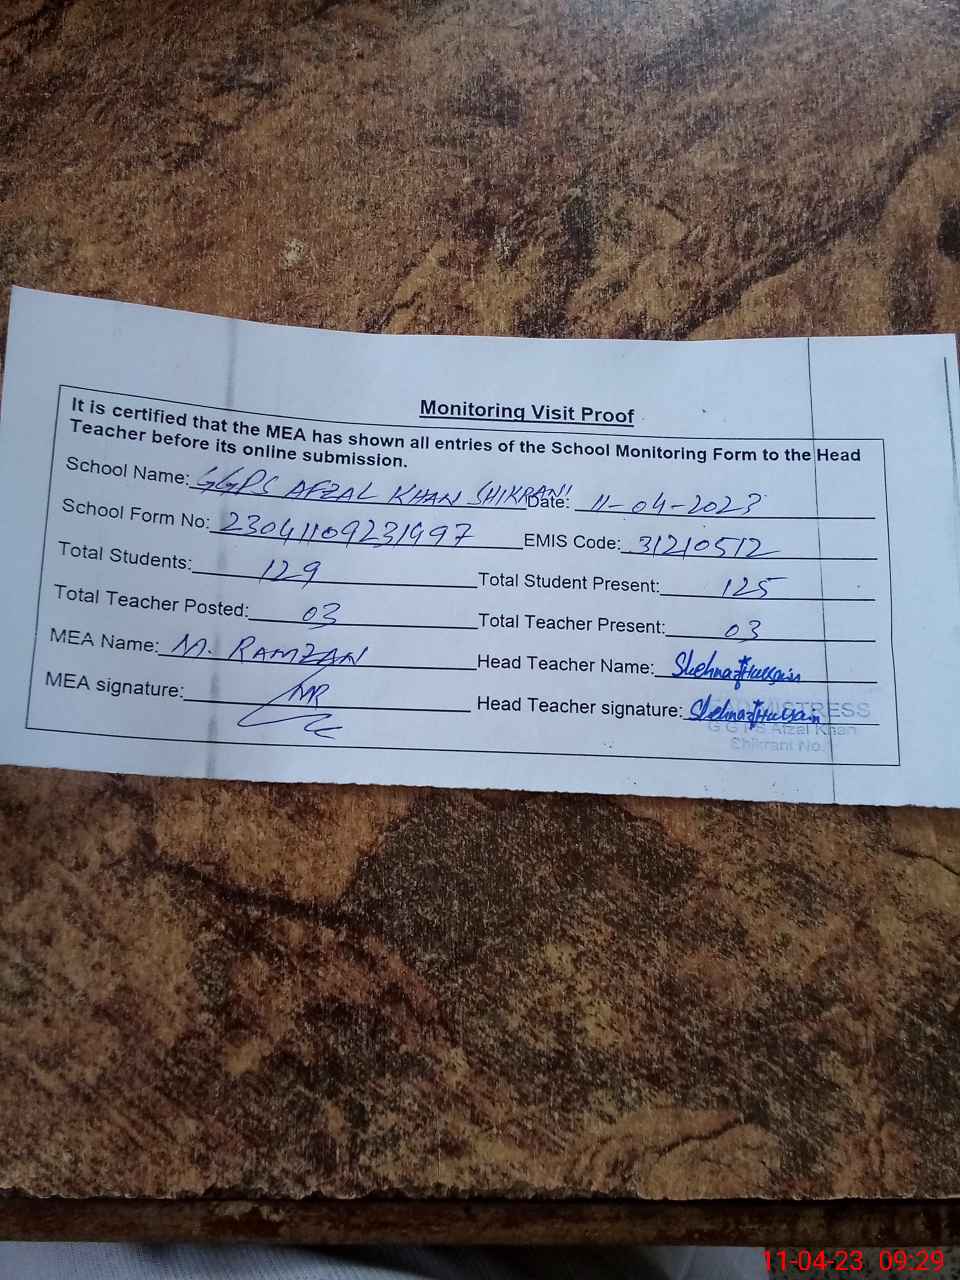 Monitoring Visit Proof
It is certified that the MEA has shown all entries of the School Monitoring Form to the Head
Teacher before its online submission.
School Name: GGPS AFZAL KHAN SHIKRANI Date: 11-04-2023
School Form No: 23041109231997 EMIS Code: 31210512
Total Students: 129 Total Student Present: 125
Total Teacher Posted: 03 Total Teacher Present: 03
MEA Name: M. RAMZAN Head Teacher Name: Shehnaz Hussain
MEA signature: MR Head Teacher signature: Shehnaz Hussain
ADMISTRESS
Afzal Khan
Shikrani No.
11-04-23 09:29